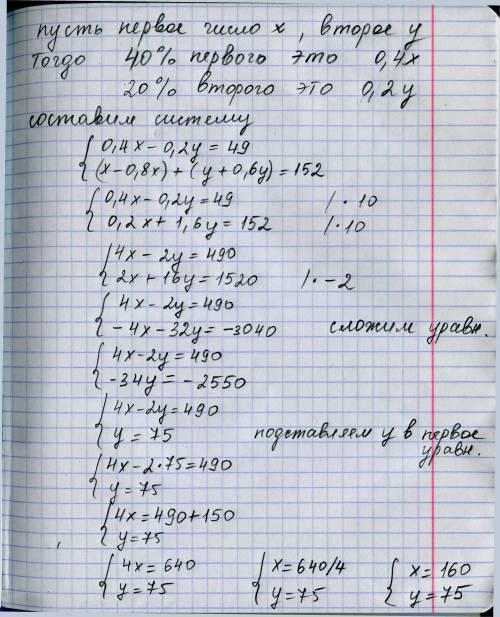 пусть первое число x, второе y
Тогда 40% первого это 0,4x
20% второго это 0,2y
составим систему
0,4x - 0,2y = 49
(x - 0,8x) + (y + 0,6y) = 152
0,4x - 0,2y = 49 / · 10
0,2x + 1,6y = 152 / · 10
4x - 2y = 490
2x + 16y = 1520 / · -2
4x - 2y = 490
-4x - 32y = -3040 сложим уравн.
4x - 2y = 490
-34y = -2550
4x - 2y = 490
y = 75 подставляем y в первое
уравн.
4x - 2·75 = 490
y = 75
4x = 490 + 150
y = 75
4x = 640 x = 640/4 x = 160
y = 75 y = 75 y = 75